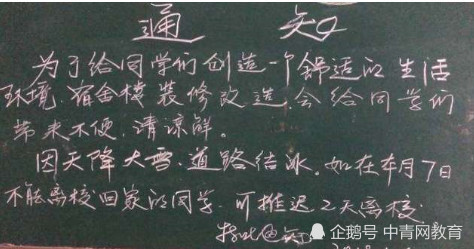 通 知
为了给同学们创造一个舒适的生活
环境.宿舍楼装修改造.会给同学们
带来不便.请谅解。
因天降大雪.道路结冰.如在本月7日
不能离校回家的同学.可推迟2天离校
特此通知
企鹅号 中青网教育